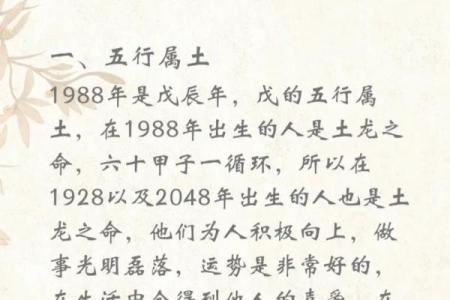 一、五行属土
1988年是戊辰年，戊的五行属
土，在1988年出生的人是土龙之
命，六十甲子一循环，所以在
1928以及2048年出生的人也是土
龙之命，他们为人积极向上，做
事光明磊落，运势是非常好的，
在生活中会得到他人的喜爱，在